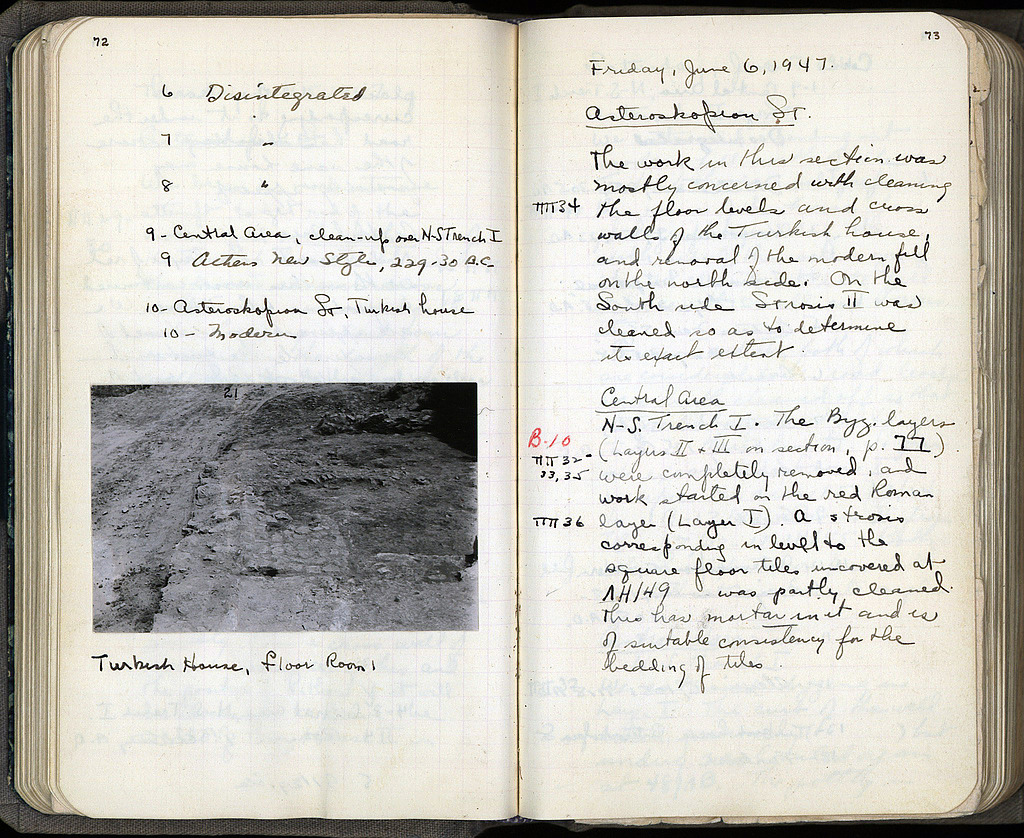 72
6 Disintegrated
7 "
8 "
9 - Central Area, clean-up over N-S Trench I
9 Athens New Style, 229-30 B.C.
10 - Asteroskopion St, Turkish house
10 - Modern
21
Turkish House, floor Room 1
73
Friday, June 6, 1947.
Asteroskopion St.
The work in this section was
mostly concerned with cleaning
ΠΠ 34 the floor levels and cross
walls of the Turkish house,
and removal of the modern fill
on the north side. On the
South side Strosis II was
cleaned so as to determine
its exact extent.
Central Area
N-S. Trench I. The Byz. layers
B-10 (Layers II + III on section, p. 77)
ΠΠ 32- were completely removed, and
33, 35 work started on the red Roman
ΠΠ 36 layer (Layer I). A strosis
corresponding in level to the
square floor tiles uncovered at
ΛΗ/49 was partly cleaned.
This has mortar in it and is
of suitable consistency for the
bedding of tiles.